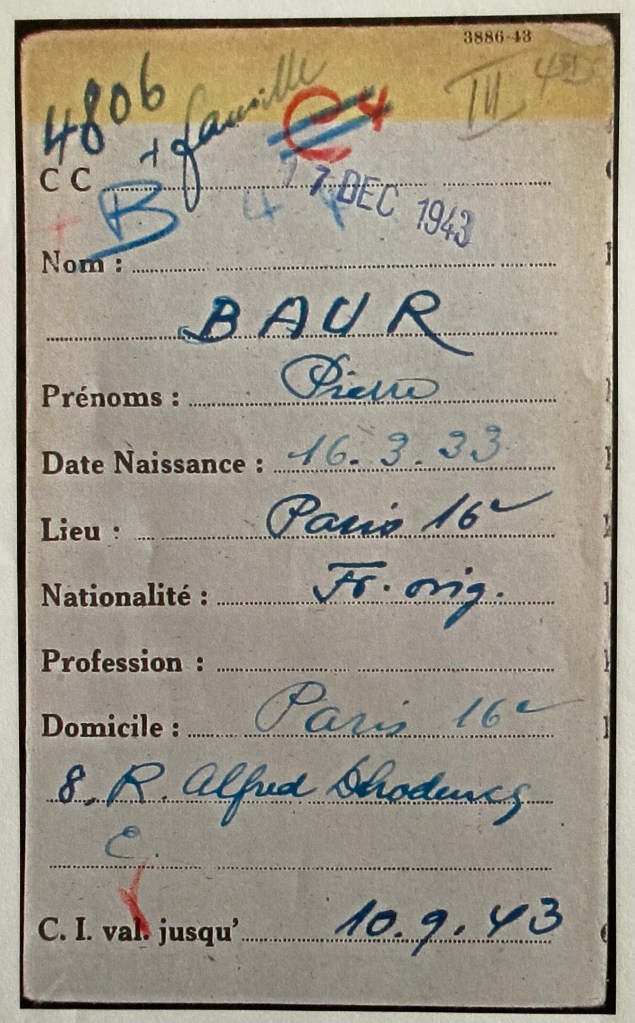 3886-43
4806
+ famille
C 4
III
C C
17 DEC 1943
B
4 4
Nom :
BAUR
Prénoms : Pierre
Date Naissance : 16.3.33
Lieu : Paris 16e
Nationalité : Fr. orig.
Profession :
Domicile : Paris 16e
8, R. Alfred Dhodencq
C.
C. I. val. jusqu' 10.9.43